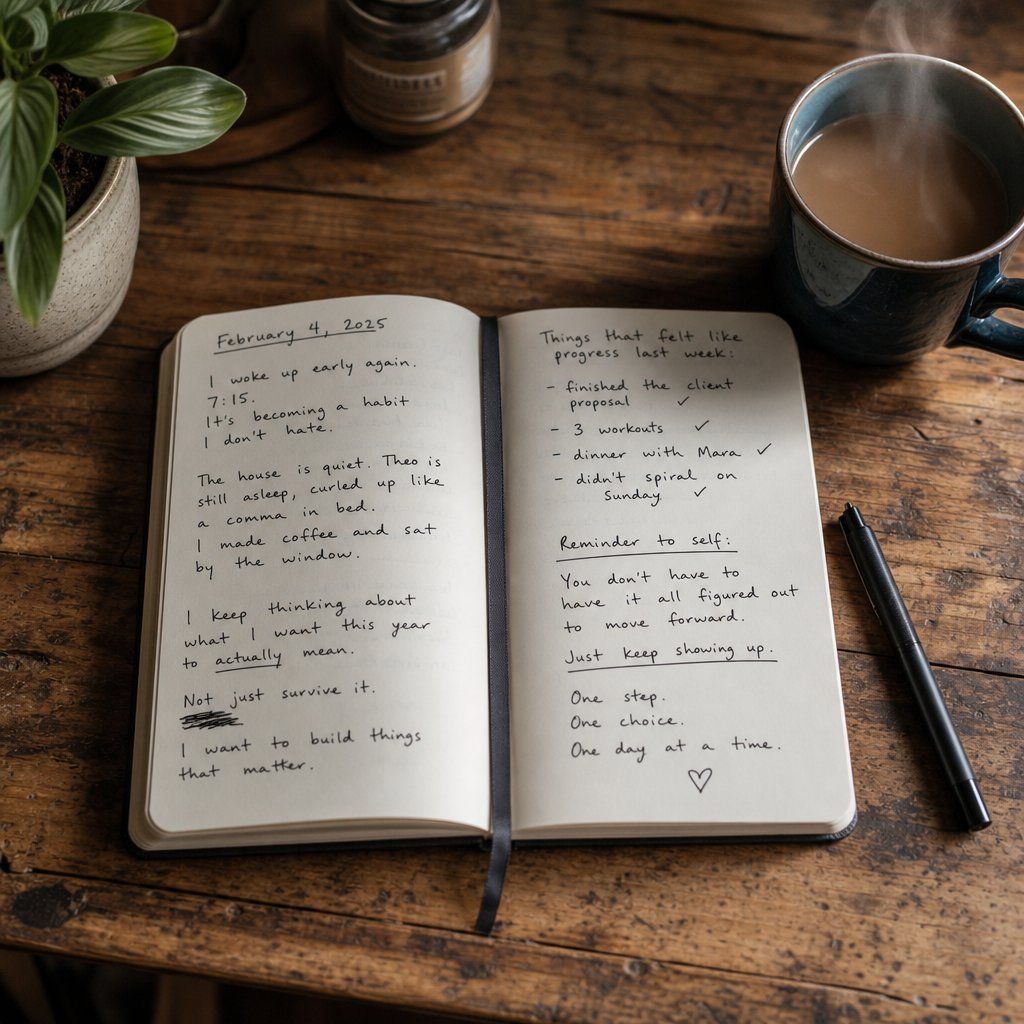 February 4, 2025
I woke up early again.
7:15.
It's becoming a habit
I don't hate.
The house is quiet. Theo is
still asleep, curled up like
a comma in bed.
I made coffee and sat
by the window.
I keep thinking about
what I want this year
to actually mean.
Not just survive it.
I want to build things
that matter.
Things that felt like
progress last week:
- finished the client
proposal ✓
- 3 workouts ✓
- dinner with Mara ✓
- didn't spiral on
Sunday ✓
Reminder to self:
You don't have to
have it all figured out
to move forward.
Just keep showing up.
One step.
One choice.
One day at a time.
♡